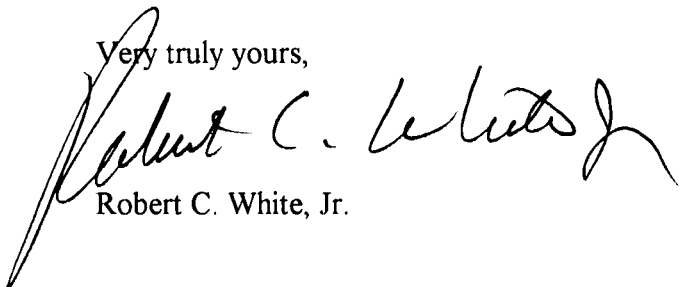 Very truly yours,
Robert C. White Jr
Robert C. White, Jr.